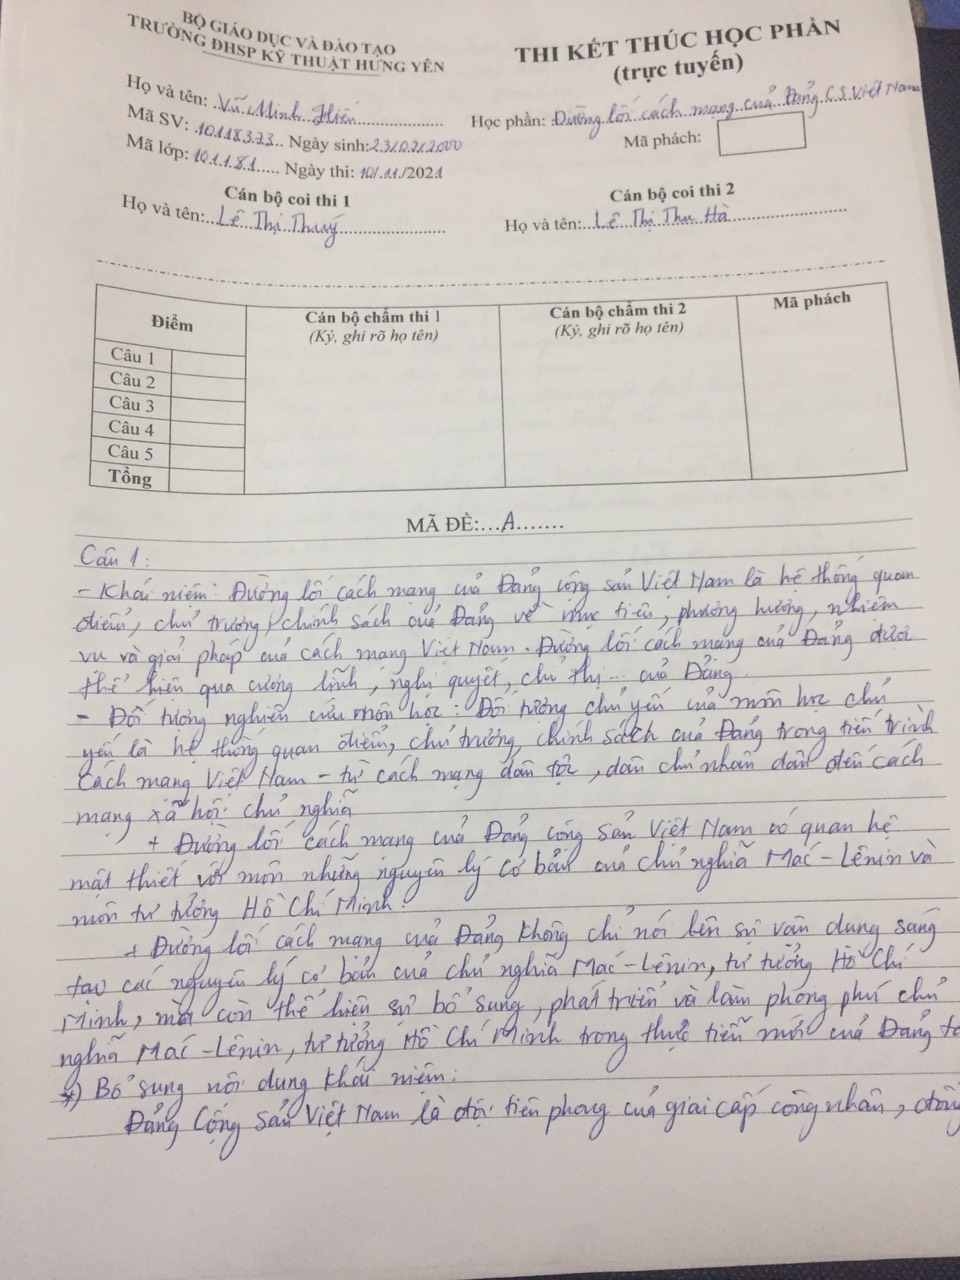 BỘ GIÁO DỤC VÀ ĐÀO TẠO
TRƯỜNG ĐHSP KỸ THUẬT HƯNG YÊN
THI KẾT THÚC HỌC PHẦN
(trực tuyến)
Họ và tên: Vũ Minh Hiến
Mã SV: 10118373 Ngày sinh: 23/02/2000
Mã lớp: 101181 Ngày thi: 10/11/2021
Học phần: Đường lối cách mạng của Đảng C.S Việt Nam
Mã phách:
Cán bộ coi thi 1
Họ và tên: Lê Thị Thuý
Cán bộ coi thi 2
Họ và tên: Lê Thị Thu Hà
Điểm
Cán bộ chấm thi 1
(Ký, ghi rõ họ tên)
Cán bộ chấm thi 2
(Ký, ghi rõ họ tên)
Mã phách
Câu 1
Câu 2
Câu 3
Câu 4
Câu 5
Tổng
MÃ ĐỀ:...A.......
Câu 1:
- Khái niệm: Đường lối cách mạng của Đảng cộng sản Việt Nam là hệ thống quan
điểm, chủ trương, chính sách của Đảng về mục tiêu, phương hướng, nhiệm
vụ và giải pháp của cách mạng Việt Nam. Đường lối cách mạng của Đảng được
thể hiện qua cương lĩnh, nghị quyết, chỉ thị... của Đảng
- Đối tượng nghiên cứu môn học: Đối tượng chủ yếu của môn học chủ
yếu là hệ thống quan điểm, chủ trương, chính sách của Đảng trong tiến trình
cách mạng Việt Nam - từ cách mạng dân tộc, dân chủ nhân dân đến cách
mạng xã hội chủ nghĩa
+ Đường lối cách mạng của Đảng cộng sản Việt Nam có quan hệ
mật thiết với môn những nguyên lý cơ bản của chủ nghĩa Mác-Lênin và
môn tư tưởng Hồ Chí Minh.
+ Đường lối cách mạng của Đảng không chỉ nói lên sự vận dụng sáng
tạo các nguyên lý cơ bản của chủ nghĩa Mác-Lênin, tư tưởng Hồ Chí
Minh, mà còn thể hiện sự bổ sung, phát triển và làm phong phú chủ
nghĩa Mác-Lênin, tư tưởng Hồ Chí Minh trong thực tiễn mới của Đảng ta
*) Bổ sung nội dung khái niệm:
Đảng Cộng Sản Việt Nam là đội tiên phong của giai cấp công nhân, đồng